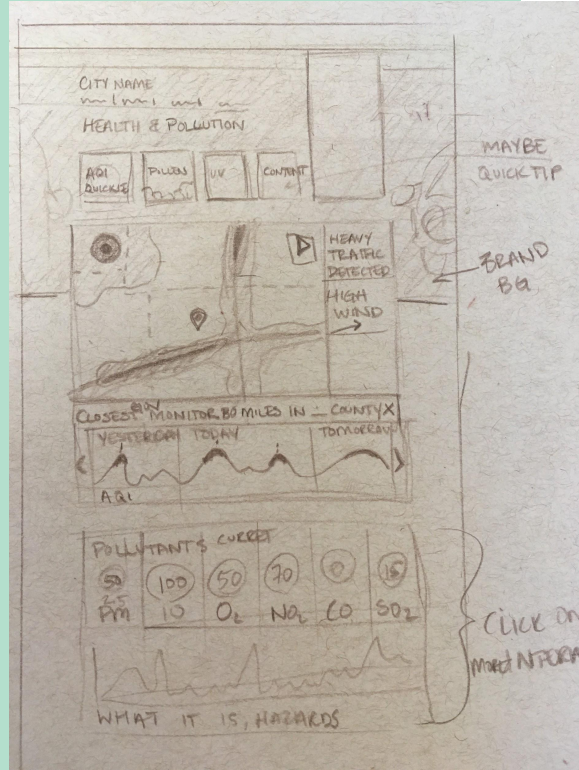 CITY NAME
HEALTH & POLLUTION
AQI
QUICKIE
POLLEN
UV
CONTENT
MAYBE
QUICK TIP
BRAND
BG
HEAVY
TRAFFIC
DETECTED
HIGH
WIND
GOV
CLOSEST MONITOR 80 MILES IN _ COUNTY X
YESTERDAY TODAY TOMORROW
AQI
POLLUTANTS CURRET
50 100 50 70 0 15
2.5
PM 10 O2 NO2 CO SO2
CLICK ON
MORE INFORMA
WHAT IT IS, HAZARDS